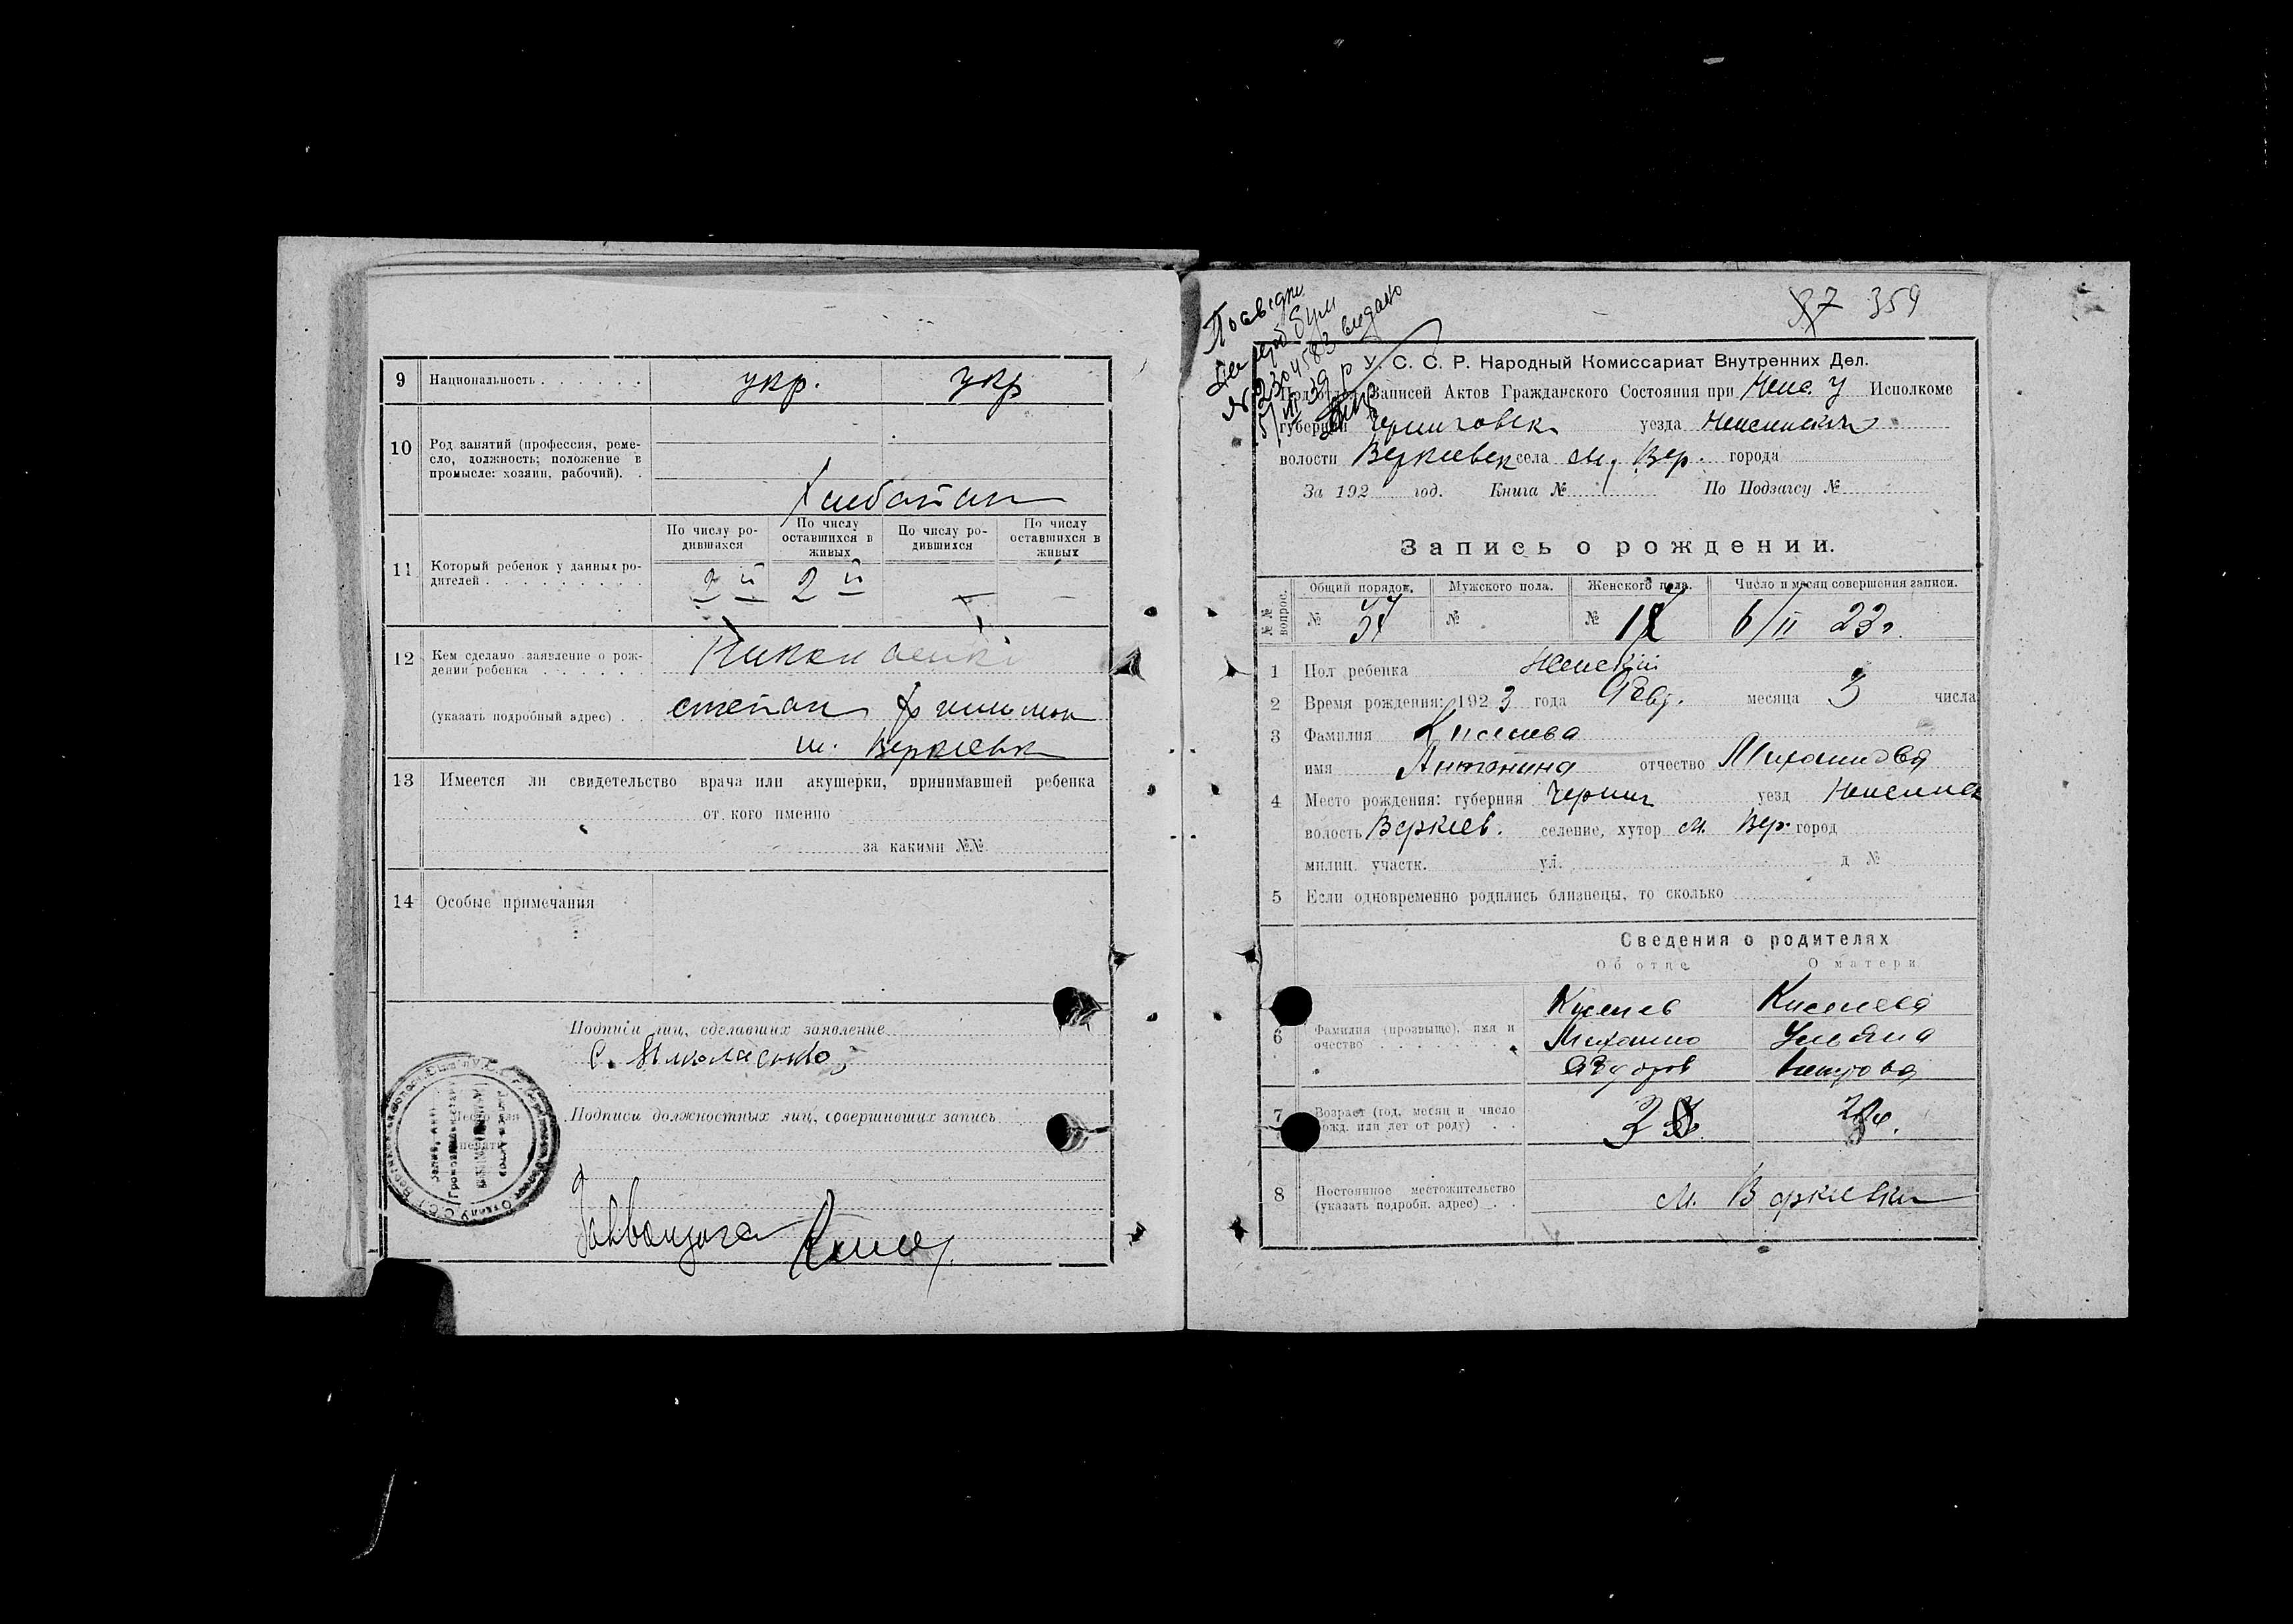 9 Национальность . . . . . . укр. укр
10 Род занятий (профессия, реме-
сло, должность; положение в
промысле: хозяин, рабочий). .
Хлебопаш
11 Который ребенок у данных ро-
дителей . . . . . . . . .
По числу ро-
дившихся
По числу
оставшихся в
живых
По числу ро-
дившихся
По числу
оставшихся в
живых
2й 2й — —
12 Кем сделано заявление о рож-
дении ребенка . . . . . .
(указать подробный адрес) . .
степан
м. Веркиевк
13 Имеется ли свидетельство врача или акушерки, принимавшей ребенка
от кого именно
за какими №№
14 Особые примечания
Подписи лиц, сделавших заявление
С.
Подписи должностных лиц, совершивших запись
87 359
№ 2304583 видано
У. С. С. Р. Народный Комиссариат Внутренних Дел.
Записей Актов Гражданского Состояния при Неж. У Исполкоме
губернии Черниговск уезда Неженский
волости Веркиевск села м. Вер. города
За 192 год. Книга № По Подзагсу №
Запись о рождении.
№№ вопрос.
Общий порядок. Мужского пола. Женского пола. Число и месяц совершения записи.
№ № № 6/II 23г.
1 Пол ребенка Женский
2 Время рождения: 1923 года Февр. месяца 3 числа
3 Фамилия Киселева
имя Антонина отчество Михайлова
4 Место рождения: губерния Черниг уезд Неженск
волость Веркиев. селение, хутор м. Вер. город
милиц. участк. ул. д №
5 Если одновременно родились близнецы, то сколько
Сведения о родителях
Об отце О матери
6 Фамилия (прозвыще), имя и
очество . . . . . . . .
Киселев Киселева
Михаило Ульяна
Федоров Петрова
7 Возраст (год, месяц и число
рожд. или лет от роду) . .
8 Постоянное местожительство
(указать подробн. адрес) . .
м. Веркиевки